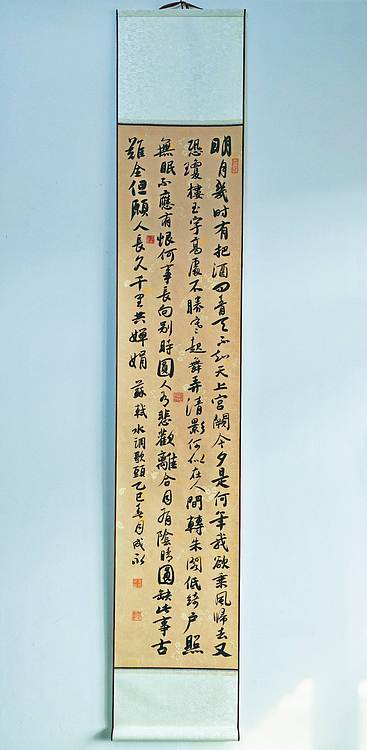 明月幾時有把酒问青天不知天上宫闕今夕是何年我欲乘風歸去又
恐瓊樓玉宇高處不勝寒起舞弄清影何似在人間轉朱閣低绮户照
無眠不應有恨何事長向别時圓人有悲歡離合月有陰晴圓缺此事古
難全但願人長久千里共嬋娟 蘇軾水调歌頭乙巳春月成永